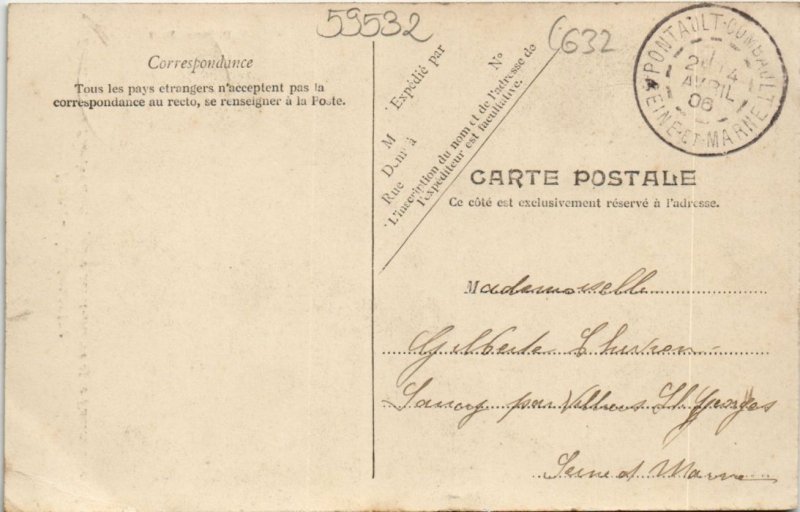 59532
632
PONTAULT-COMBAULT
24
AVRIL
06
SEINE-ET-MARNE
Correspondance
Tous les pays etrangers n'acceptent pas la
correspondance au recto, se renseigner à la Poste.
Expédié par
M
Demt à
Rue
N°
L'inscription du nom et de l'adresse de
l'expéditeur est facultative.
CARTE POSTALE
Ce côté est exclusivement réservé à l'adresse.
Mademoiselle
Gilberte
par Villiers St Georges
Seine et Marne